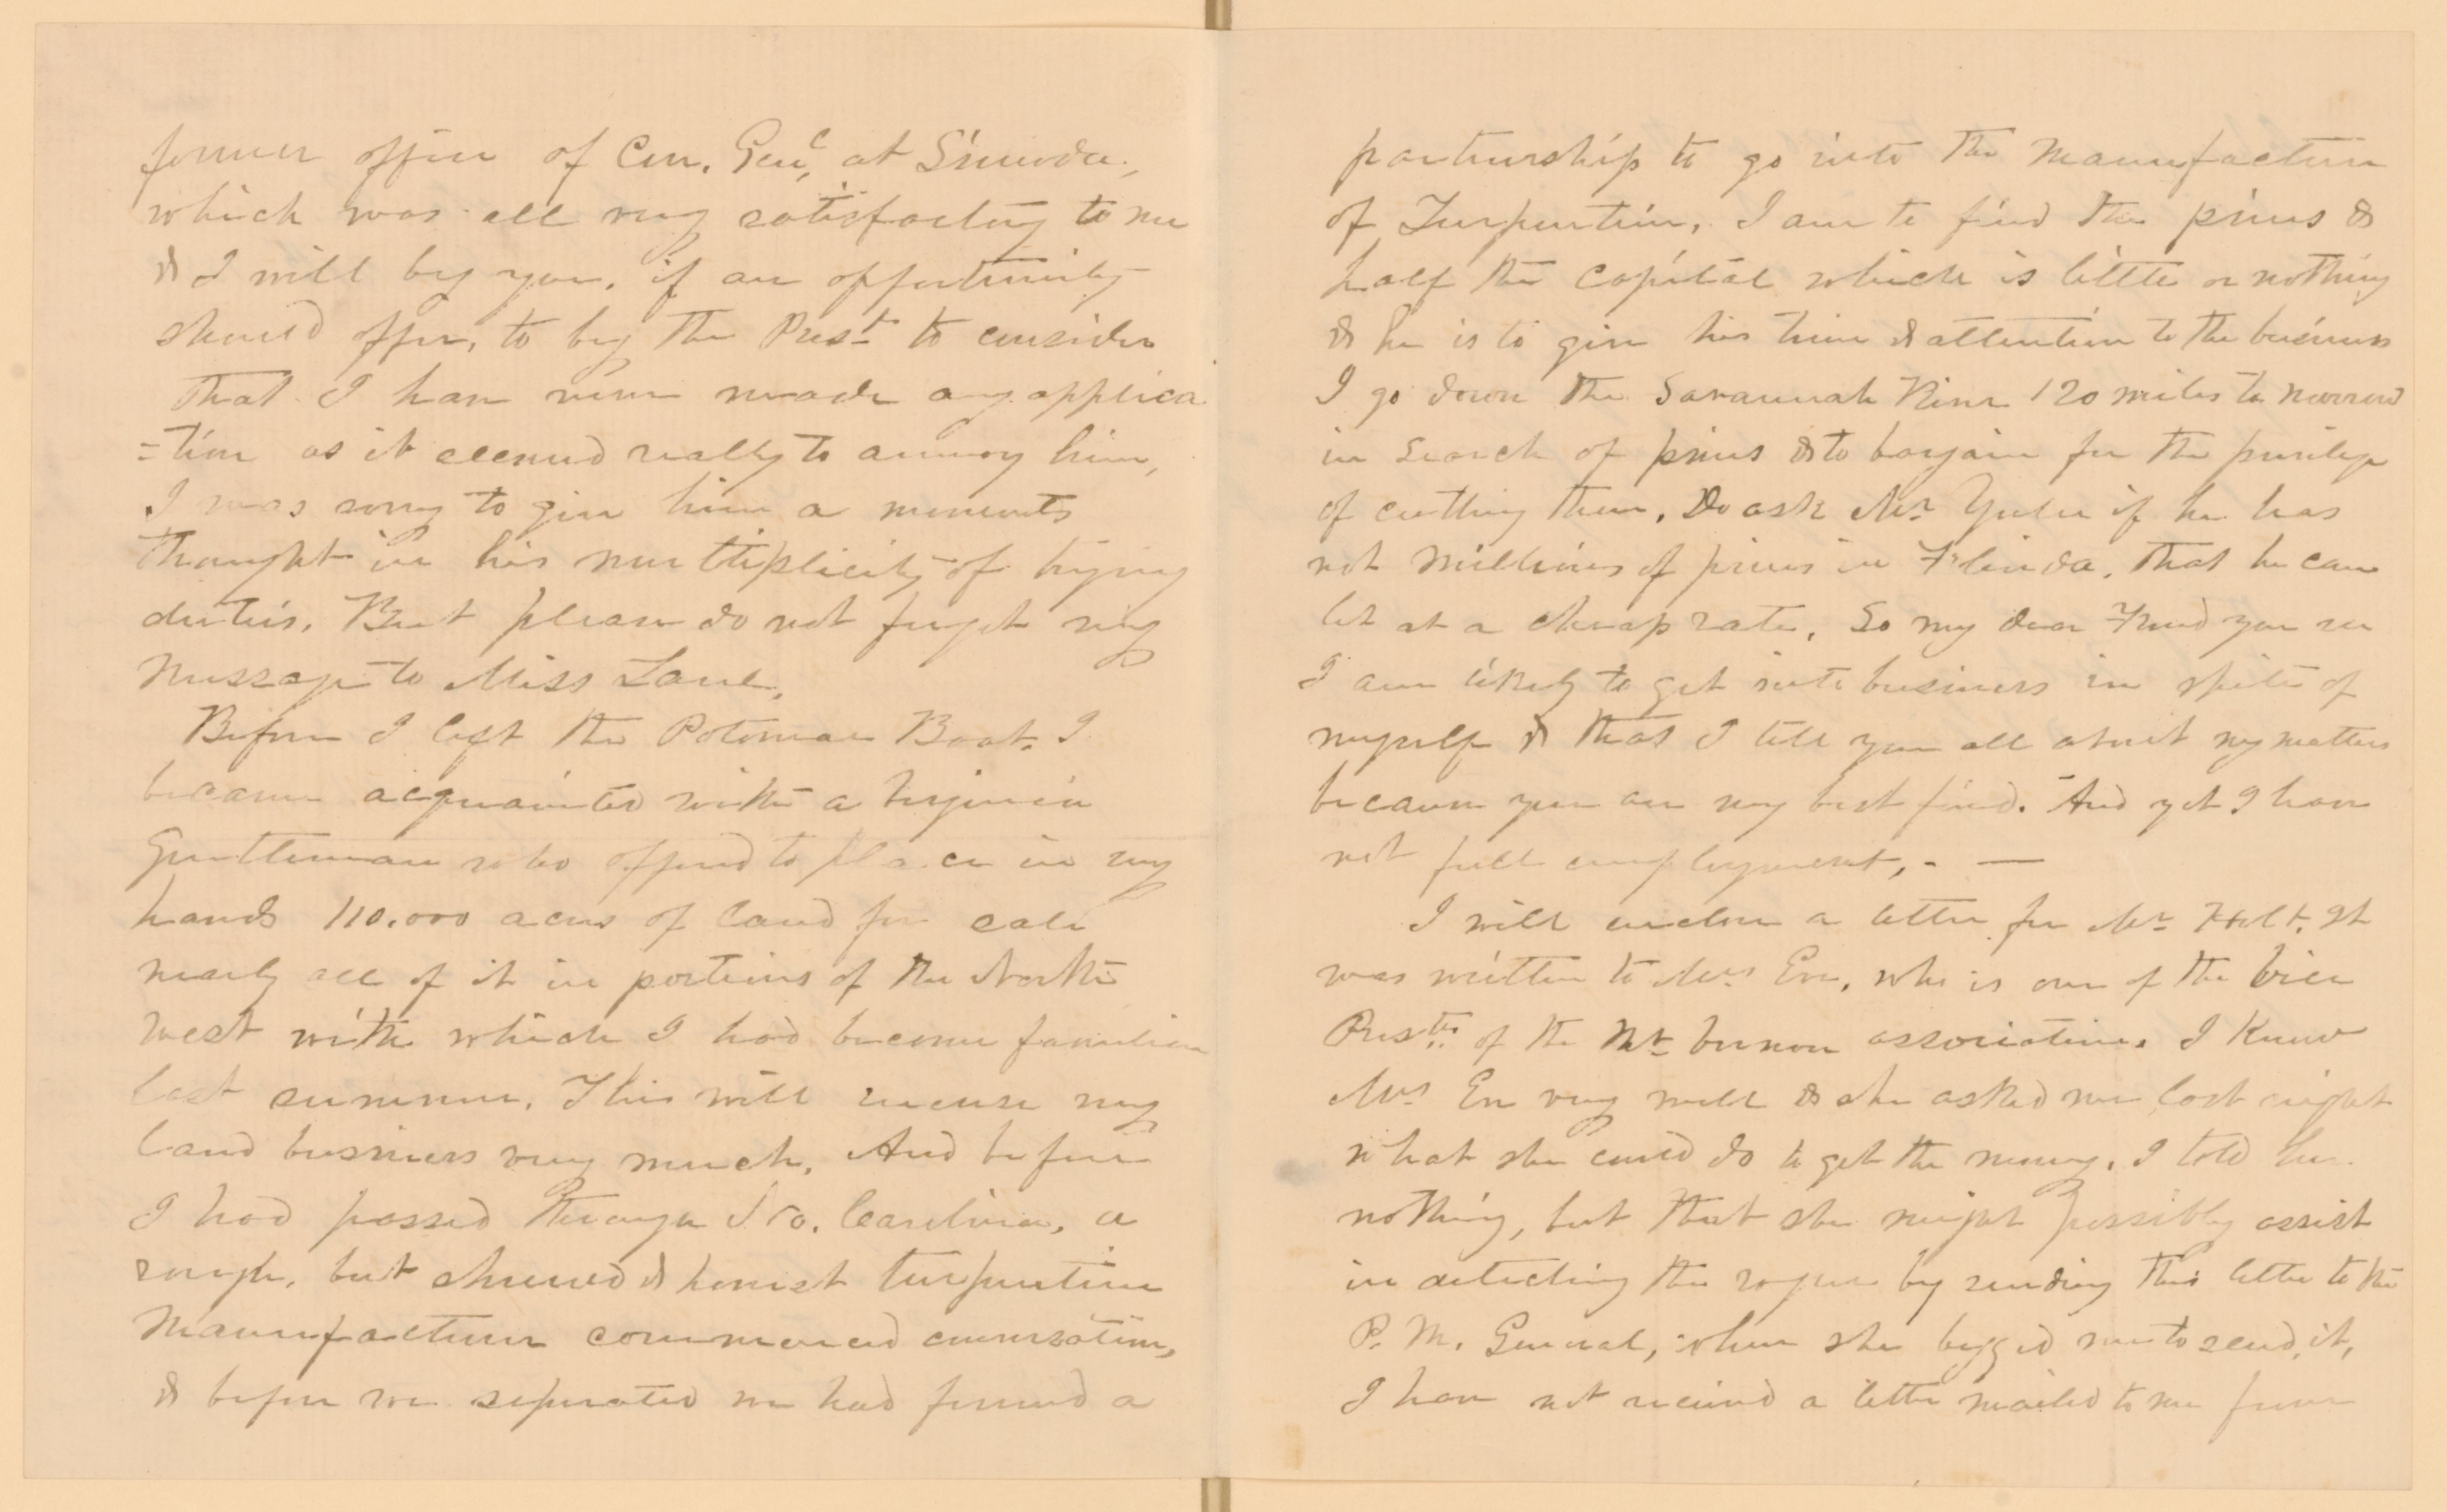 former office of Con. Genl, at Simoda,
which was all very satisfactory to me
& I will beg you, if an opportunity
should offer, to beg the Prest to consider
that I have never made any applica
=tion as it seemed really to annoy him,
I was sorry to give him a moments
thought in his multiplicity of trying
duties. But please do not forget my
message to Miss Lane.
Before I left the Potomac Boat. I
became acquainted with a Virginia
Gentleman who offered to place in my
hands 110.000 acres of land for sale
nearly all of it in portions of the North
West with which I had become familiar
last summer. This will increase my
land business very much. And before
I had passed through No. Carolina, a
rough, but shrewd & honest turpentine
Manufacturer commenced conversation,
& before we separated we had formed a
partnership to go into the Manufacture
of Turpentine, I am to find the pines &
half the capital which is little or nothing
& he is to give his time & attention to the business
I go down the Savannah River 120 miles to morrow
in search of pines & to bargain for the privilege
of cutting them. Do ask Mr Yulee if he has
not millions of pines in Florida, that he can
let at a cheap rate. So my dear Friend you see
I am likely to get into business in spite of
myself & that I tell you all about my matters
because you are my best friend. And yet I have
not full employment, - —
I will enclose a letter for Mr Holt. It
was written to Mrs Eve, who is one of the Vice
Prests of the Mt Vernon association. I know
Mrs Eve very well & she asked me last night
what she could do to get the money. I told her
nothing, but that she might possibly assist
in detecting the rogue by sending this letter to the
P. M. General, when she begged me to send it,
I have not received a letter mailed to me from